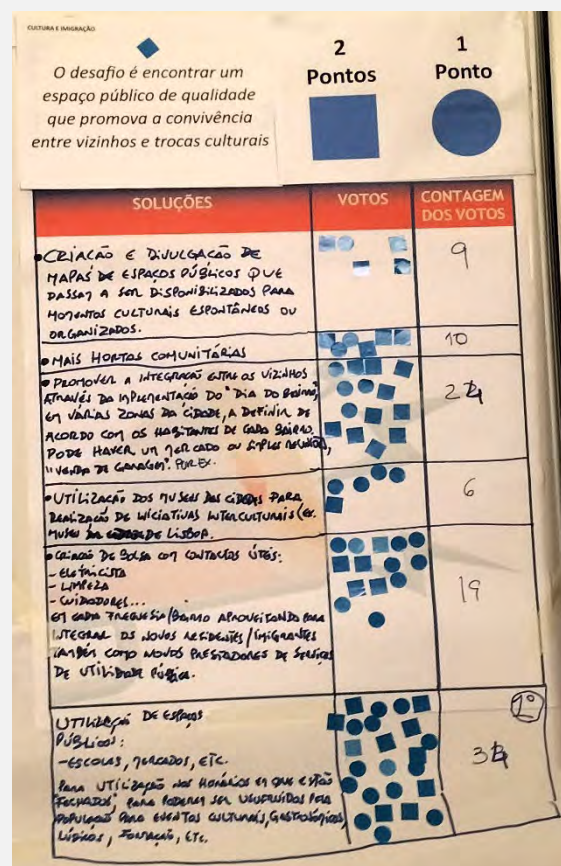 CULTURA E IMIGRAÇÃO
O desafio é encontrar um
espaço público de qualidade
que promova a convivência
entre vizinhos e trocas culturais
2
Pontos
1
Ponto
SOLUÇÕES
VOTOS
CONTAGEM
DOS VOTOS
• CRIAÇÃO E DIVULGAÇÃO DE
MAPAS DE ESPAÇOS PÚBLICOS QUE
PASSAM A SER DISPONIBILIZADOS PARA
MOMENTOS CULTURAIS ESPONTÂNEOS OU
ORGANIZADOS.
9
• MAIS HORTAS COMUNITÁRIAS
10
• PROMOVER A INTEGRAÇÃO ENTRE OS VIZINHOS
ATRAVÉS DA IMPLEMENTAÇÃO DO "DIA DO BAIRRO",
EM VÁRIAS ZONAS DA CIDADE, A DEFINIR DE
ACORDO COM OS HABITANTES DE CADA BAIRRO.
PODE HAVER UM MERCADO OU SIMPLES REUNIÃO,
"VENDA DE GARAGEM". POR EX.
2
• UTILIZAÇÃO DOS MUSEUS DAS CIDADES PARA
REALIZAÇÃO DE INICIATIVAS INTERCULTURAIS (EX.
MUSEU DA CIDADE DE LISBOA.
6
• CRIAÇÃO DE BOLSA COM CONTACTOS ÚTEIS:
- ELETRICISTA
- LIMPEZA
- CUIDADORES...
EM CADA FREGUESIA/BAIRRO APROVEITANDO PARA
INTEGRAR OS NOVOS RESIDENTES/IMIGRANTES
TAMBÉM COMO NOVOS PRESTADORES DE SERVIÇOS
DE UTILIDADE PÚBLICA.
19
UTILIZAÇÃO DE ESPAÇOS
PÚBLICOS:
- ESCOLAS, MERCADOS, ETC.
PARA UTILIZAÇÃO NOS HORÁRIOS EM QUE ESTÃO
"FECHADOS", PARA PODEREM SER USUFRUÍDOS PELA
POPULAÇÃO PARA EVENTOS CULTURAIS, GASTRONÓMICOS,
LÚDICOS, FORMAÇÃO, ETC.
1º
3